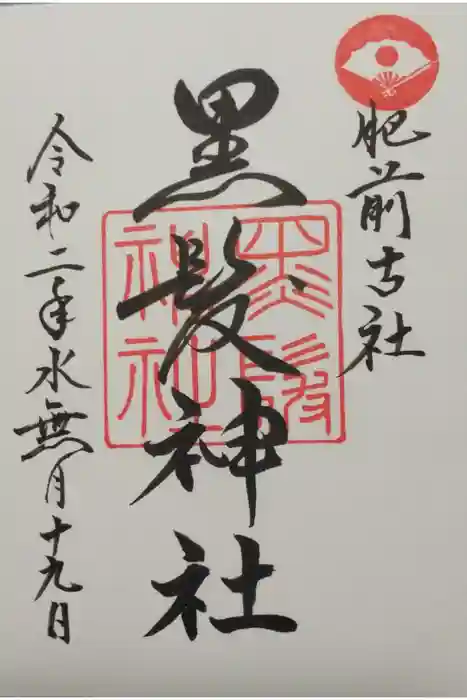 肥前古社
黒髪神社
黒髪
神社
令和二年水無月十九日